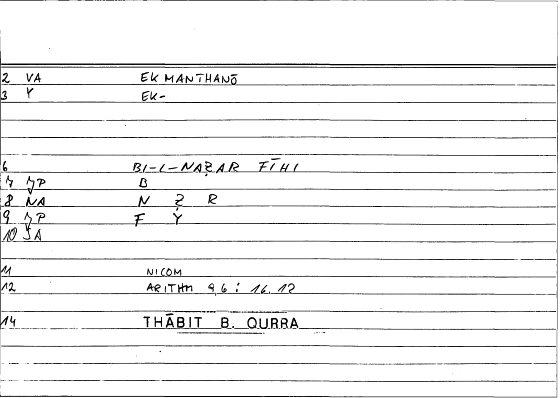 2 VA EKMANTHANŌ
3 Y EK-
6 BI-L-NAẒAR FĪHI
7 JP B
8 NA N Ẓ R
9 JP F Y
10 JA
11 NICOM
12 ARITHM 9,6 : 16.12
14 THĀBIT B. QURRA